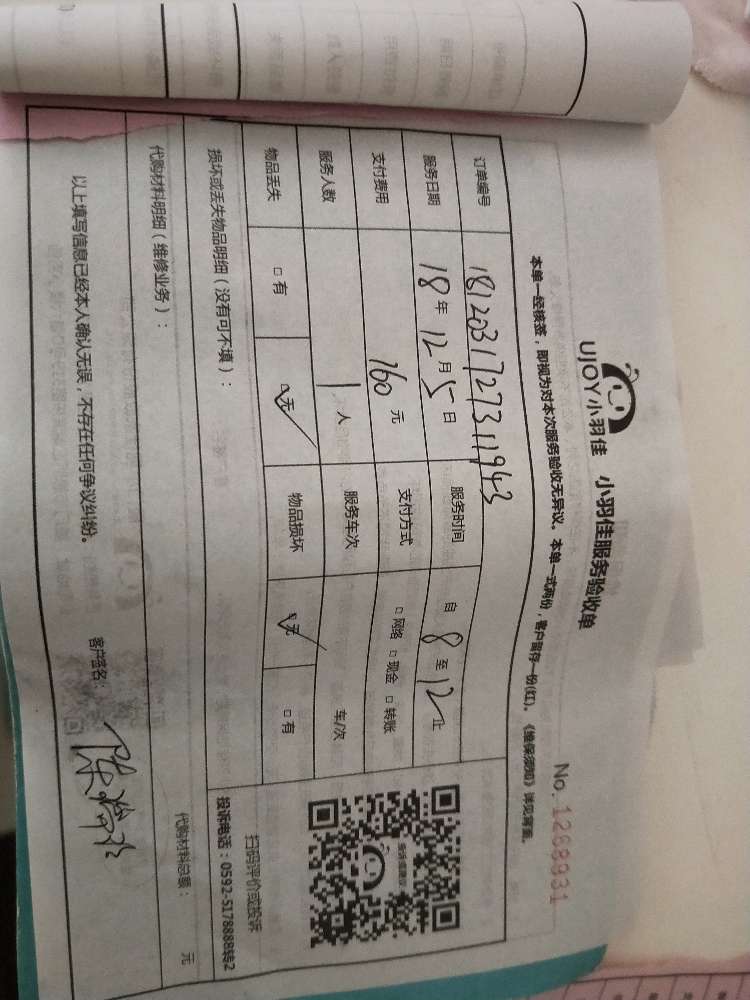 UJOY小羽佳 小羽佳服务验收单
No. 1268931
本单一经核签，即视为对本次服务验收无异议。本单一式两份，客户留存一份(红)。《维保须知》详见背面。
订单编号 1812031727311943
服务日期 18年12月5日 服务时间 自8至12止
支付费用 160元 支付方式 □网络 □现金 □转账
服务人数 1人 服务车次 车/次
物品丢失 □有 ☑无 物品损坏 ☑无 □有
损坏或丢失物品明细（没有可不填）：
扫码评价或投诉
投诉电话：0592-5178888转2
代购材料明细（维修业务）： 代购材料总额： 元
以上填写信息已经本人确认无误，不存在任何争议纠纷。 客户签名：